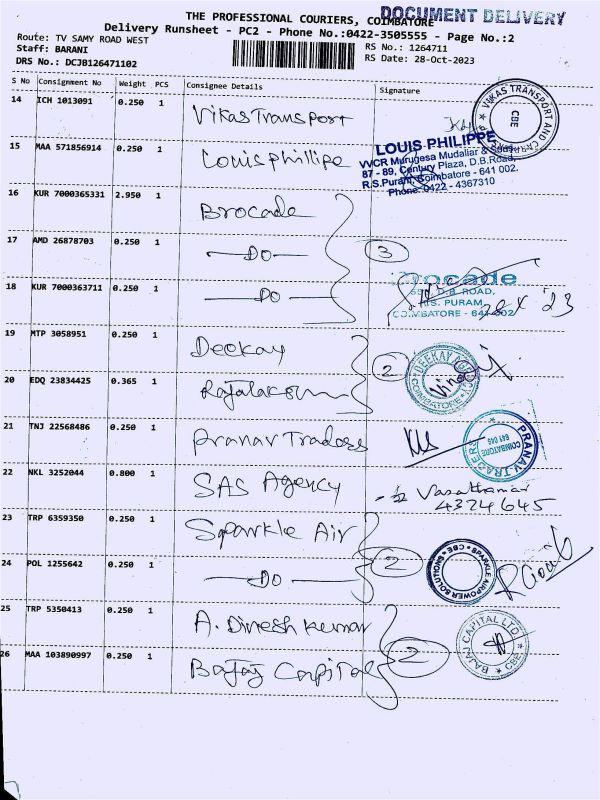 THE PROFESSIONAL COURIERS, COIMBATORE
DOCUMENT DELIVERY
Delivery Runsheet - PC2 - Phone No.:0422-3505555 - Page No.:2
Route: TV SAMY ROAD WEST
RS No.: 1264711
Staff: BARANI
RS Date: 28-Oct-2023
DRS No.: DCJB126471102
S No Consignment No Weight PCS Consignee Details Signature
14 ICH 1013091 0.250 1 Vikas Transport
VIKAS TRANSPORT AND CBE
15 MAA 571856914 0.250 1 Louisphillipe
LOUIS PHILIPPE
VVCR Murugesa Mudaliar & Sons
87 - 89, Century Plaza, D.B.Road,
R.S.Puram, Coimbatore - 641 002.
Phone: 0422 - 4367310
16 KUR 7000365331 2.950 1 Brocade
17 AMD 26878703 0.250 1 —DO— 3
18 KUR 7000363711 0.250 1 —DO—
brocade
D.B. ROAD,
R.S. PURAM,
COIMBATORE - 641 002
19 MTP 3058951 0.250 1 Deekay 2
DEEKAY COIMBATORE
20 EDQ 23834425 0.365 1
21 TNJ 22568486 0.250 1 Pranav Tradess
PRANAV TRADERS COIMBATORE 641 045
22 NKL 3252044 0.800 1 SAS Agency
4324645
23 TRP 6359350 0.250 1 Sparkle Air
24 POL 1255642 0.250 1 —DO— 2
SPARKLE AIRPOWER SOLUTIONS CBE
25 TRP 5350413 0.250 1 A. Dinesh Kumar
26 MAA 103890997 0.250 1 Bajaj Capital 2
BAJAJ CAPITAL LTD. CBE